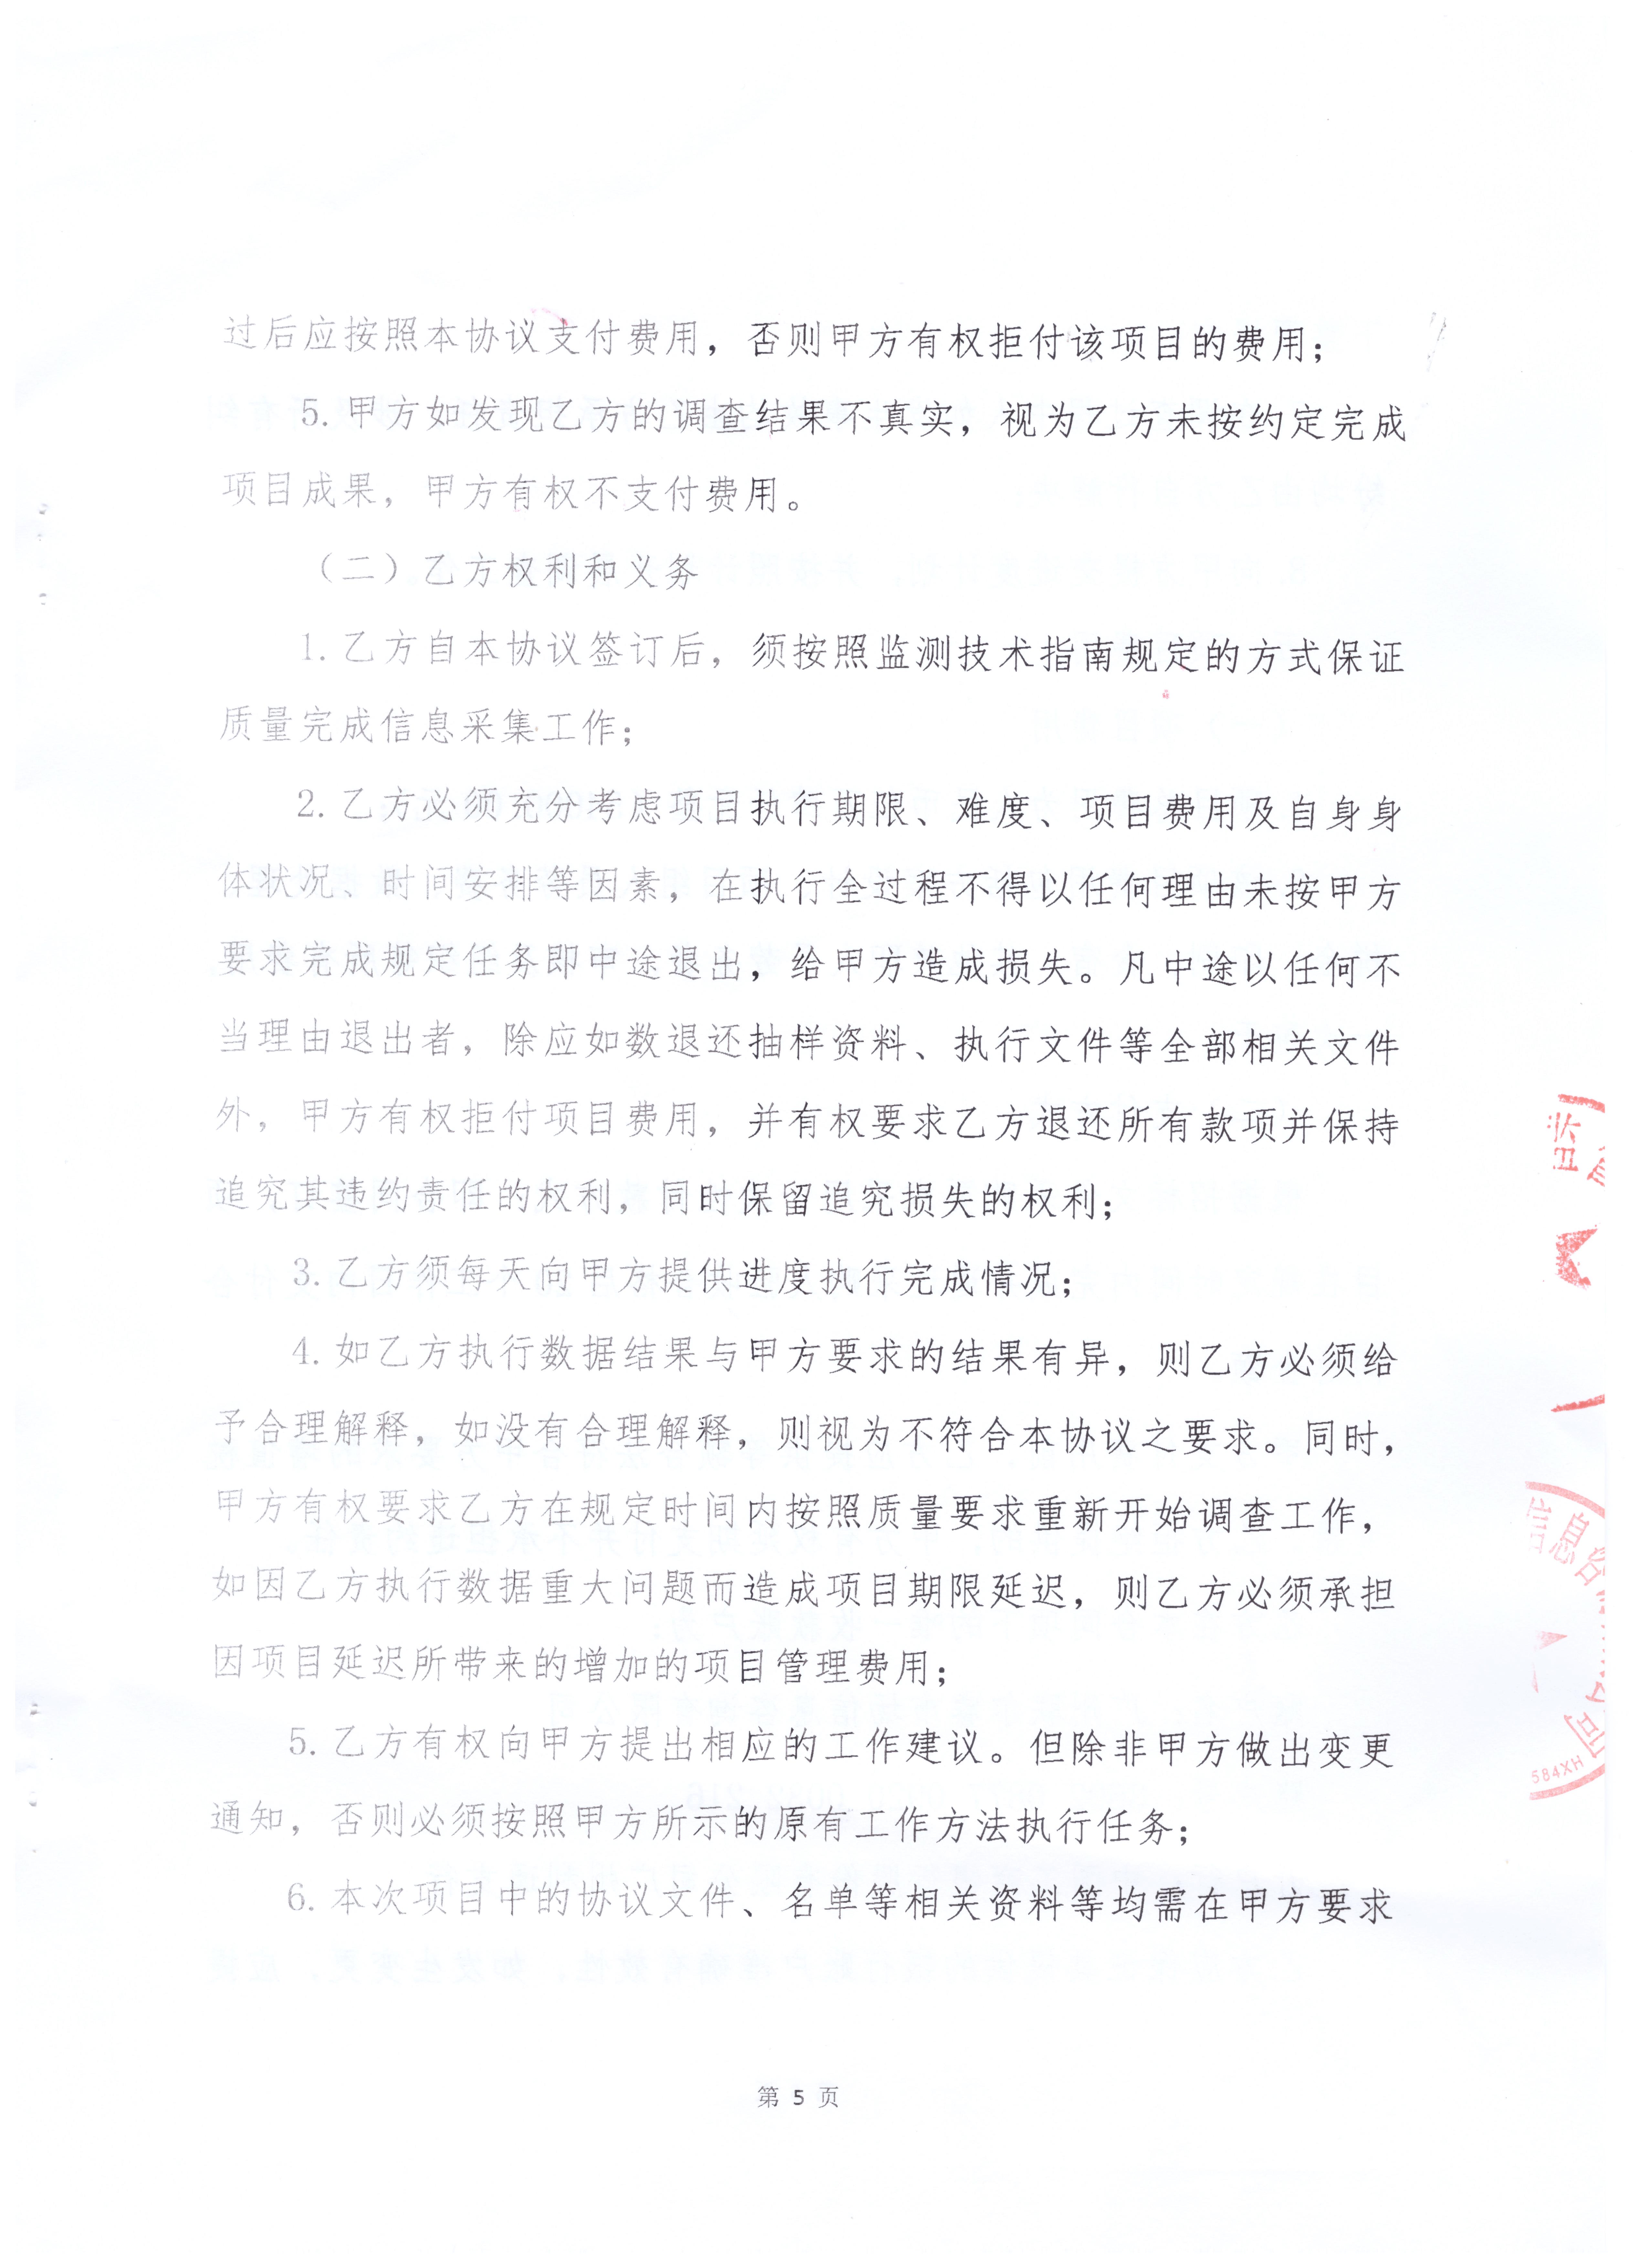 过后应按照本协议支付费用，否则甲方有权拒付该项目的费用；
5.甲方如发现乙方的调查结果不真实，视为乙方未按约定完成
项目成果，甲方有权不支付费用。
（二）乙方权利和义务
1.乙方自本协议签订后，须按照监测技术指南规定的方式保证
质量完成信息采集工作；
2.乙方必须充分考虑项目执行期限、难度、项目费用及自身身
体状况、时间安排等因素，在执行全过程不得以任何理由未按甲方
要求完成规定任务即中途退出，给甲方造成损失。凡中途以任何不
当理由退出者，除应如数退还抽样资料、执行文件等全部相关文件
外，甲方有权拒付项目费用，并有权要求乙方退还所有款项并保持
追究其违约责任的权利，同时保留追究损失的权利；
3.乙方须每天向甲方提供进度执行完成情况；
4.如乙方执行数据结果与甲方要求的结果有异，则乙方必须给
予合理解释，如没有合理解释，则视为不符合本协议之要求。同时，
甲方有权要求乙方在规定时间内按照质量要求重新开始调查工作，
如因乙方执行数据重大问题而造成项目期限延迟，则乙方必须承担
因项目延迟所带来的增加的项目管理费用；
5.乙方有权向甲方提出相应的工作建议。但除非甲方做出变更
通知，否则必须按照甲方所示的原有工作方法执行任务；
6.本次项目中的协议文件、名单等相关资料等均需在甲方要求
第 5 页
监
信息
司
584XH